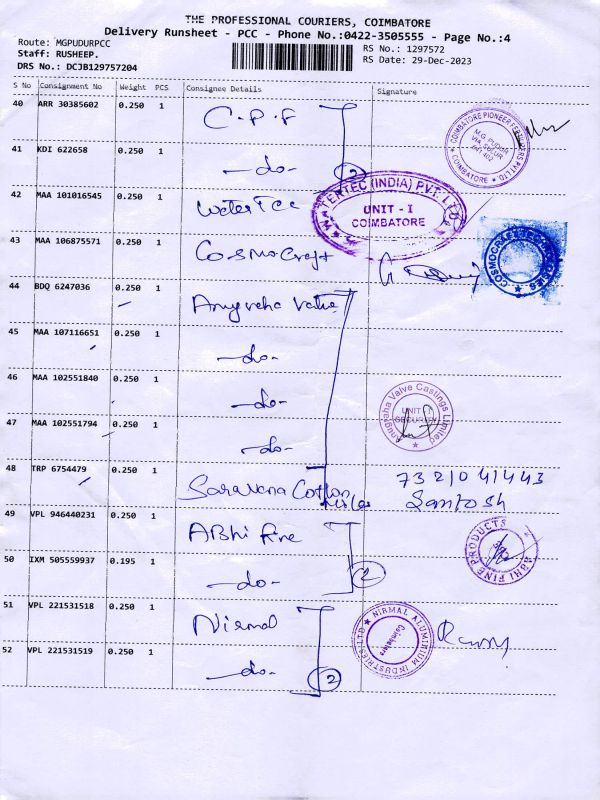 THE PROFESSIONAL COURIERS, COIMBATORE
Delivery Runsheet - PCC - Phone No.:0422-3505555 - Page No.:4
Route: MGPUDURPCC
Staff: RUSHEEP.
DRS No.: DCJB129757204
RS No.: 1297572
RS Date: 29-Dec-2023
S No Consignment No Weight PCS Consignee Details Signature
40 ARR 30385602 0.250 1 C.P.F
COIMBATORE PIONEER FERTILIZERS PVT LTD
COIMBATORE
41 KDI 622658 0.250 1 -do- 2
42 MAA 101016545 0.250 1 Watertec
WATERTEC (INDIA) PVT. LTD.
UNIT - I
COIMBATORE
43 MAA 106875571 0.250 1 Cosmocraft
44 BDQ 6247036 0.250 1 Anugraha Valve
45 MAA 107116651 0.250 1 -do-
46 MAA 102551840 0.250 1 -do-
Anugraha Valve Castings Limited
UNIT - I
SECURITY
47 MAA 102551794 0.250 1 -do-
48 TRP 6754479 0.250 1 Saravana Cotton Mills 7321041443
Santosh
49 VPL 946440231 0.250 1 ABhi fine
ABHI FINE PRODUCTS
50 IXM 505559937 0.195 1 -do- 2
51 VPL 221531518 0.250 1 Nirmal
NIRMAL ALUMINIUM INDUSTRIES LTD
Coimbatore
52 VPL 221531519 0.250 1 -do- 2